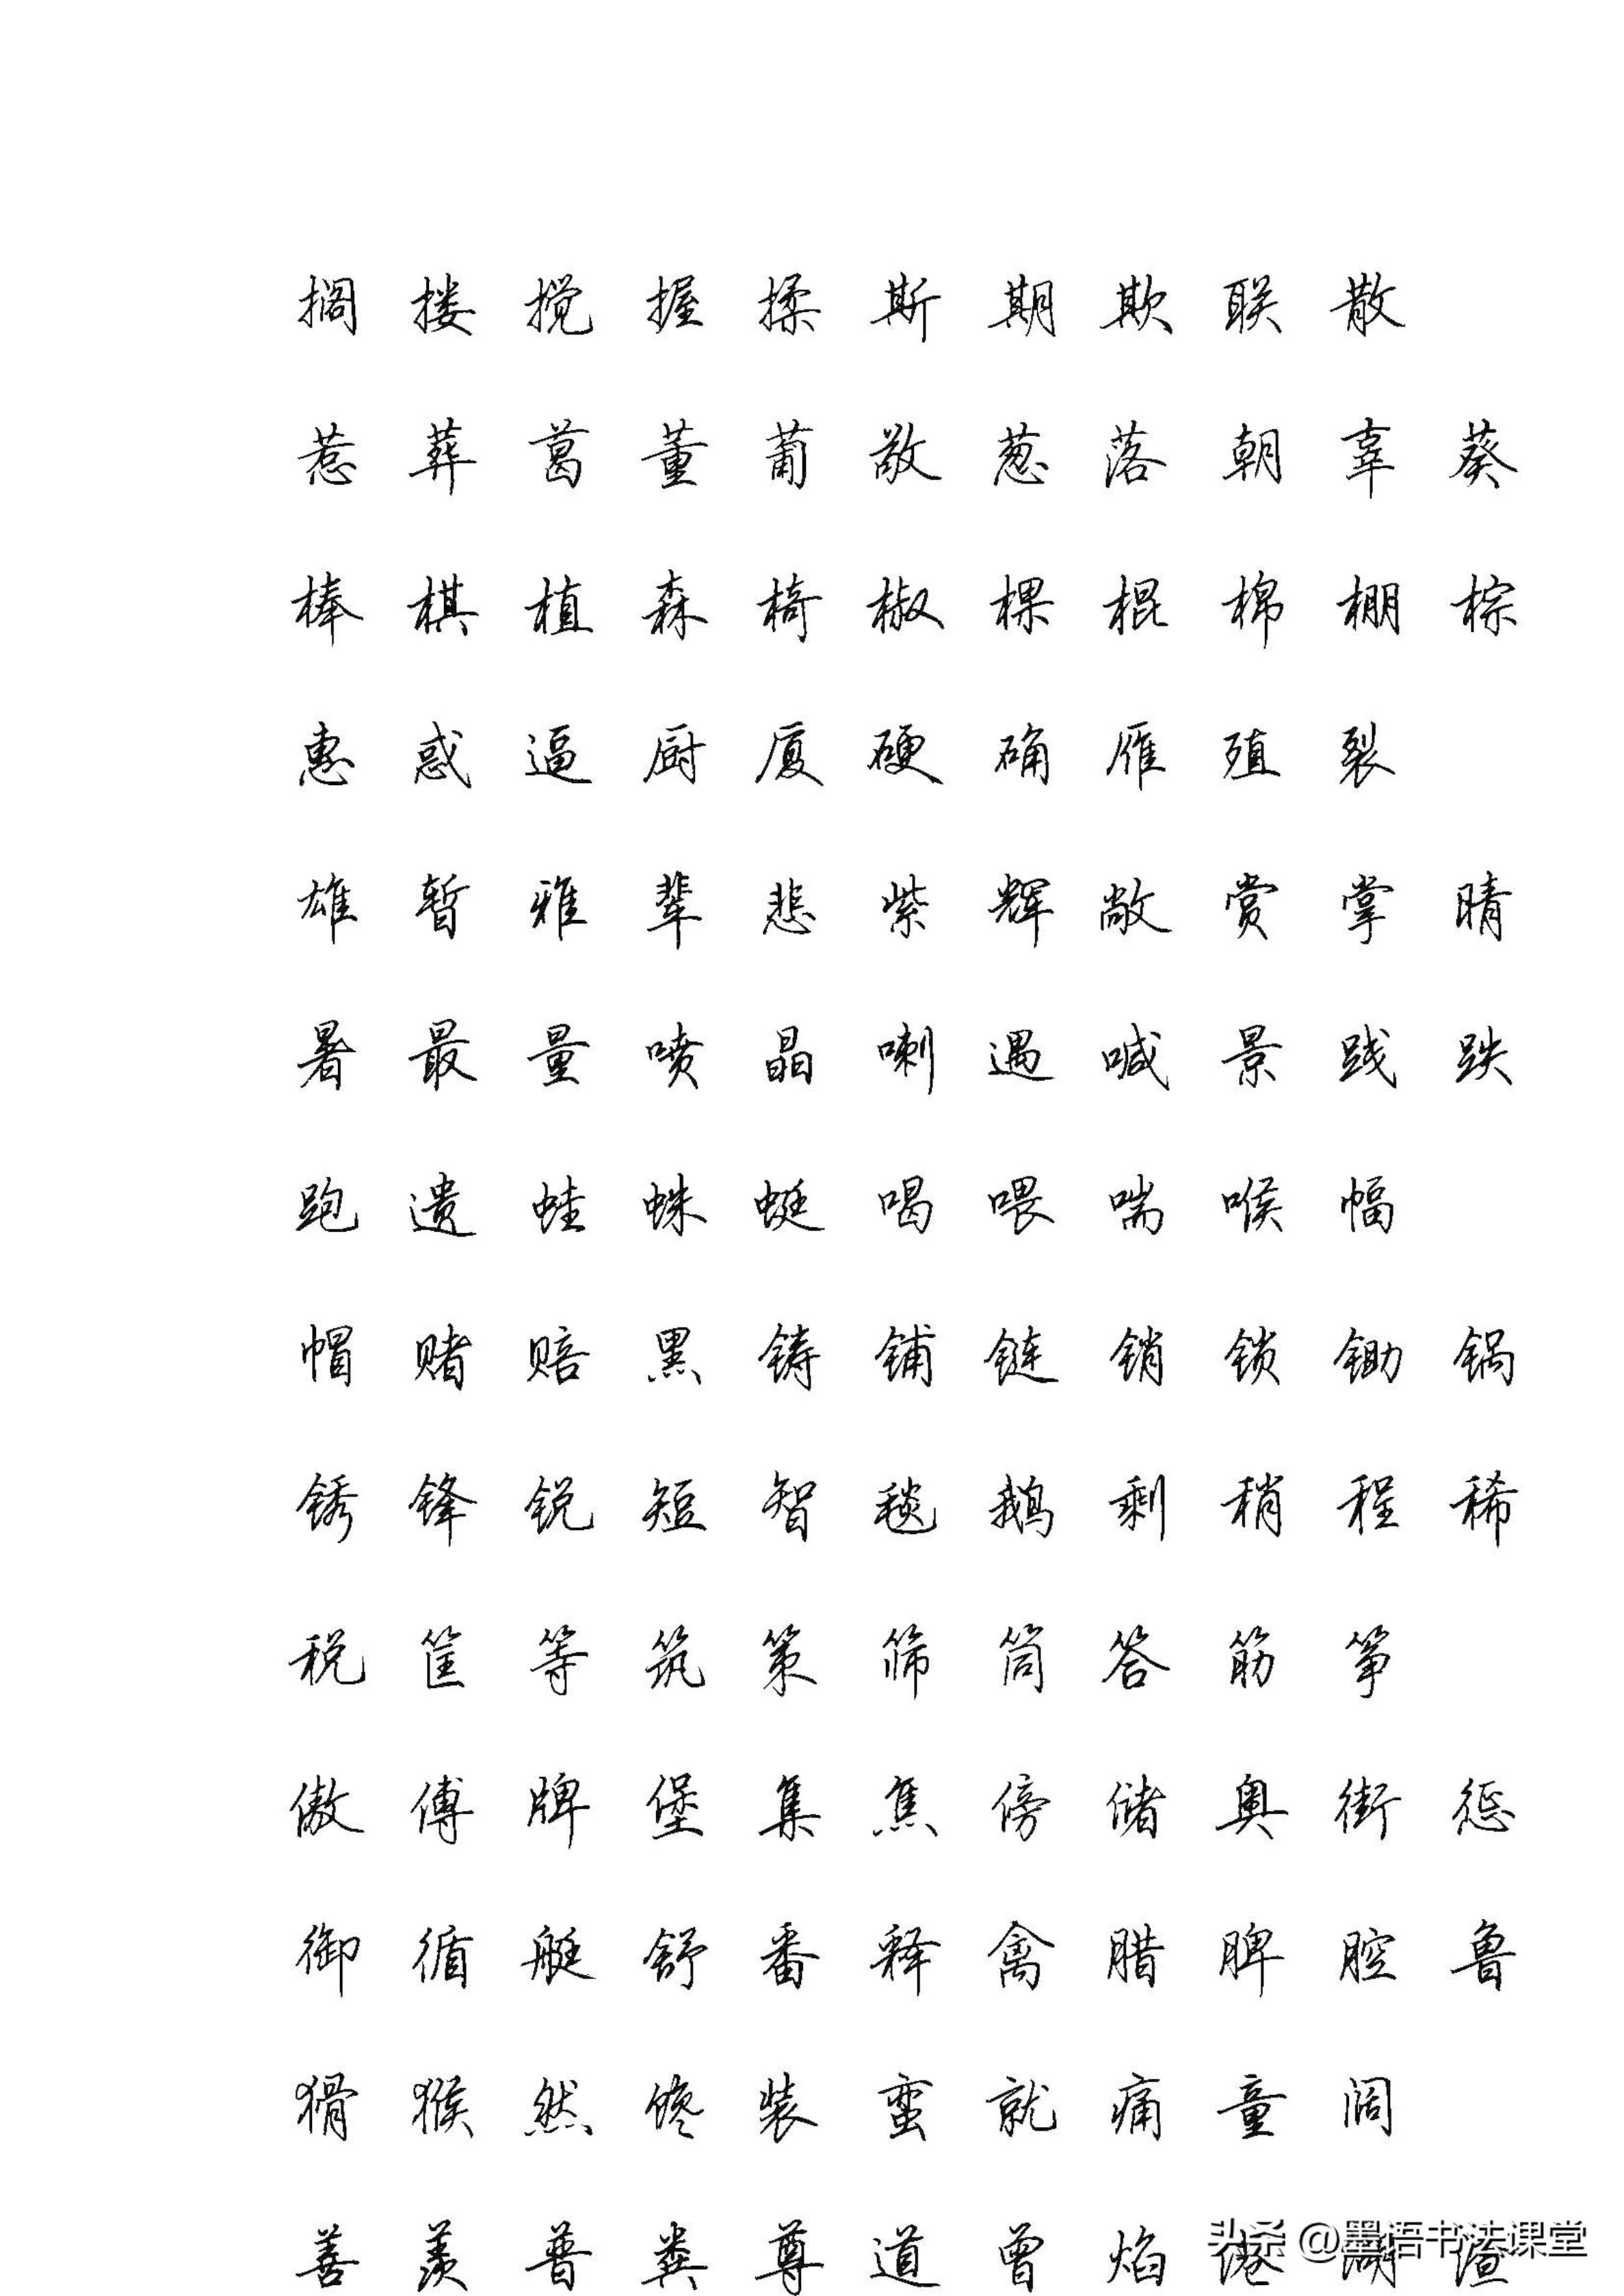 搁 搂 搅 握 揉 斯 期 欺 联 散
惹 葬 葛 董 葡 敬 葱 落 朝 辜 葵
棒 棋 植 森 椅 椒 棵 棍 棉 棚 棕
惠 惑 逼 厨 厦 硬 确 雁 殖 裂
雄 暂 雅 辈 悲 紫 辉 敞 赏 掌 晴
暑 最 量 喷 晶 喇 遇 喊 景 践 跌
跑 遗 蛙 蛛 蜓 喝 喂 喘 喉 幅
帽 赌 赔 黑 铸 铺 链 销 锁 锄 锅
锈 锋 锐 短 智 毯 鹅 剩 稍 程 稀
税 筐 等 筑 策 筛 筒 答 筋 筝
傲 傅 牌 堡 集 焦 傍 储 奥 街 惩
御 循 艇 舒 番 释 禽 腊 脾 腔 鲁
猾 猴 然 馋 装 蛮 就 痛 童 阔
善 羡 普 粪 尊 道 曾 焰 港 湖 渣
头条 @墨语书法课堂